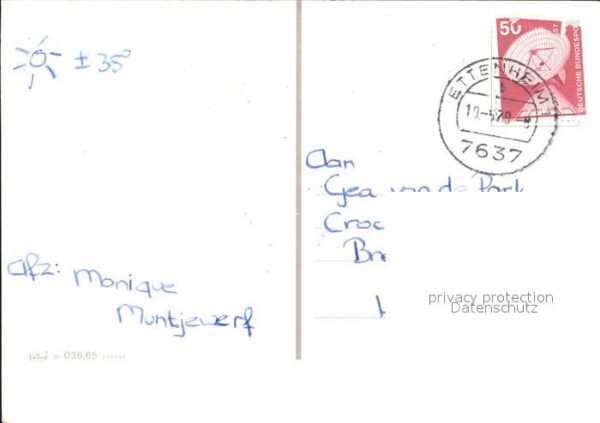 ± 35°
50
DEUTSCHE BUNDESPOST
ETTENHEIM
b
7637
Aan
Gea van de Park
Croc
Br
Afz: Monique
Muntjewerf
privacy protection
Datenschutz
036.65